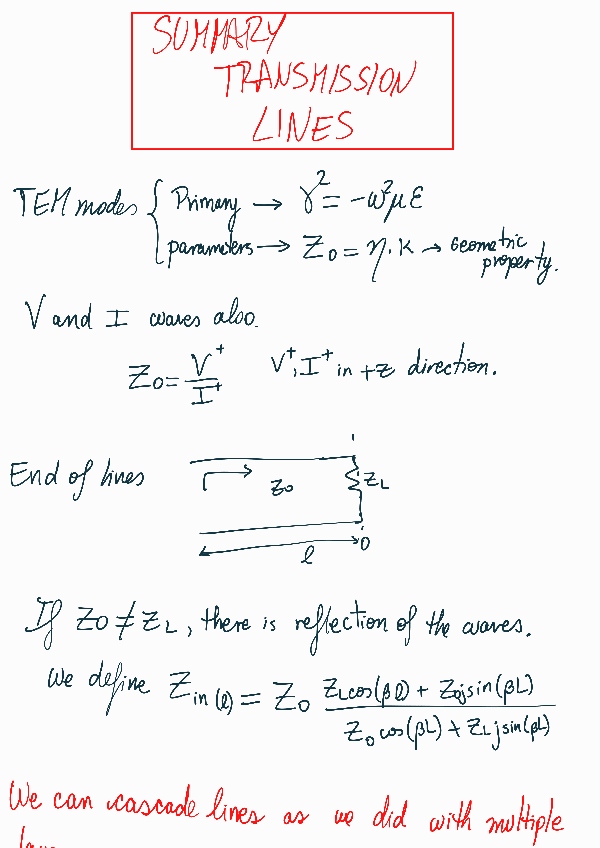 SUMMARY
TRANSMISSION
LINES
TEM modes { Primary → γ² = -ω²με
parameters → Z₀ = η.K → Geometric
property.
V and I waves also.
Z₀ = V⁺/I⁺ V⁺, I⁺ in +z direction.
End of lines
Z₀ ZL
l 0
If Z₀ ≠ ZL, there is reflection of the waves.
We define Zin(l) = Z₀ (ZL cos(βl) + Z₀ j sin(βL)) / (Z₀ cos(βL) + ZL j sin(βL))
We can cascade lines as we did with multiple